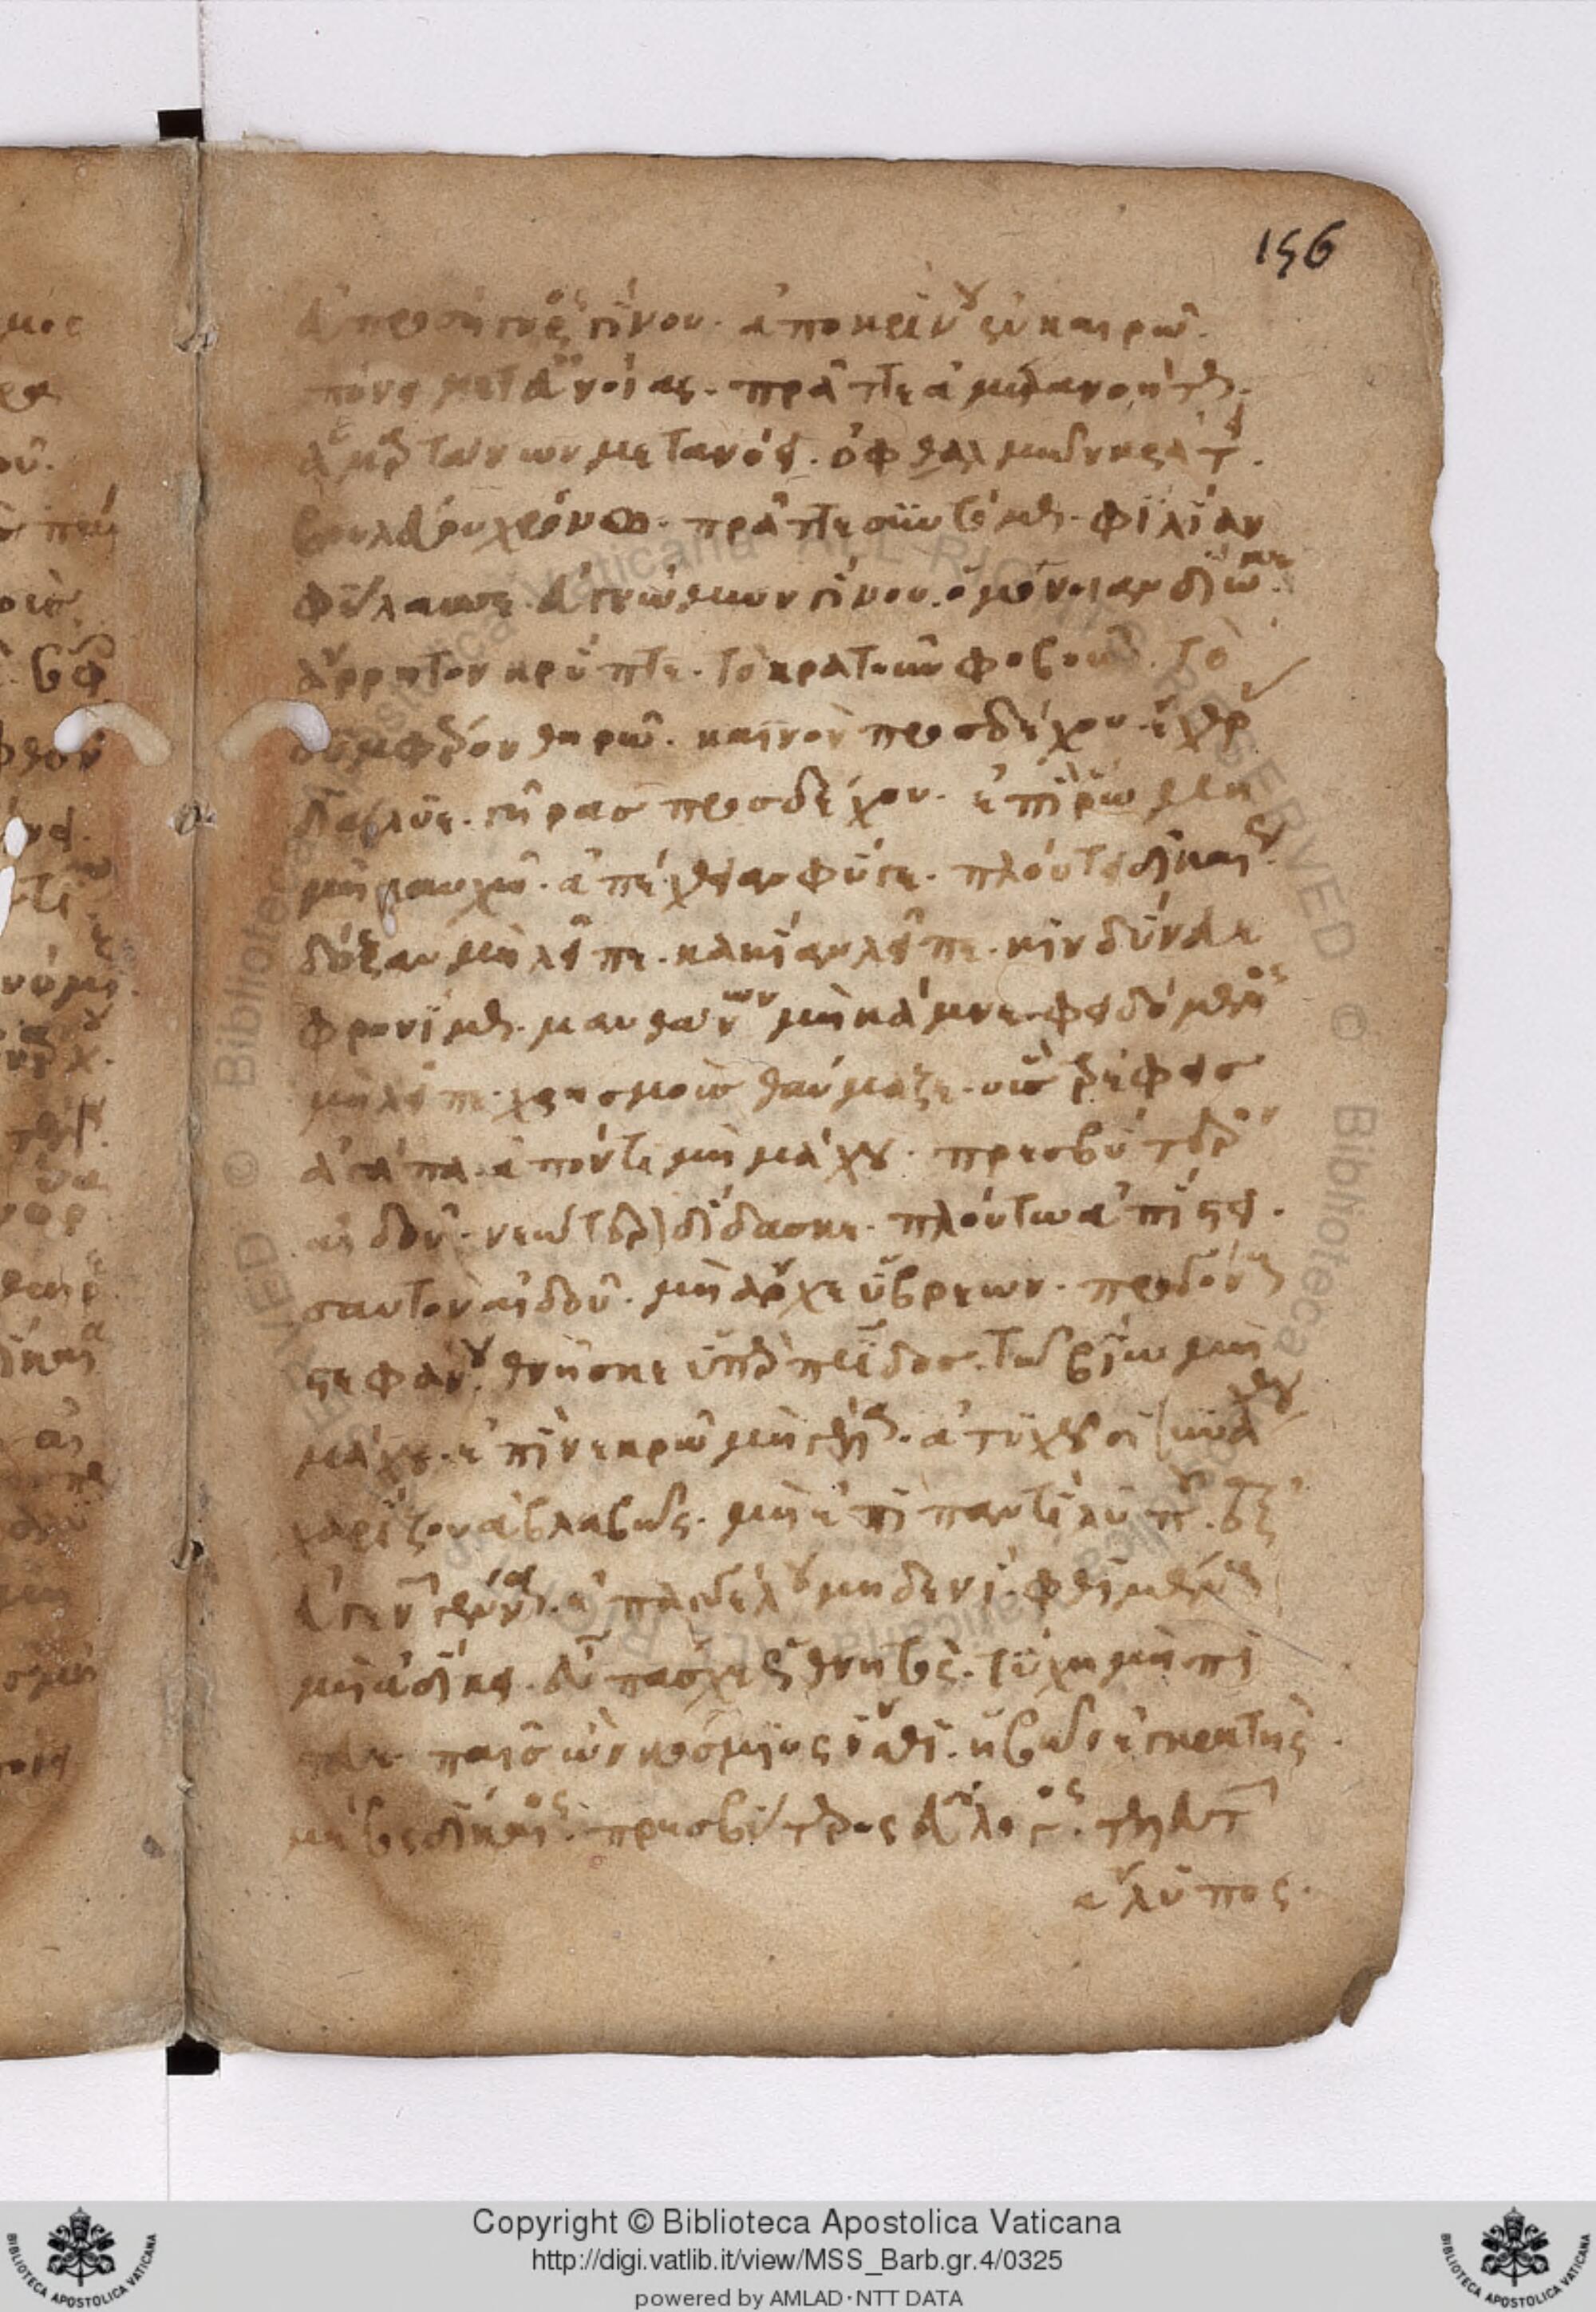 156
πρᾶττε ἀμετανοήτως.
ἁμαρτάνων μετανόει. ὀφθαλμοῦ κράτει.
βουλεύου χρόνω. πρᾶττε συντόμως. φιλίαν
φύλασσε. εὐγνώμων γίνου. ὁμόνοιαν δίωκε
ἄρρητον κρύπτε. τὸ κρατοῦν φοβοῦ. τὸ
συμφέρον θηρῶ. καιρὸν προσδέχου. ἔχθρας
διάλυε. γῆρας προσδέχου. ἐπὶ ῥώμη
μὴ καυχῶ. ἀπέχθειαν φεῦγε. πλούτει δικαίως.
δόξαν μὴ λεῖπε. κακίαν λεῖπε. κινδύνευε
φρονίμως. μανθάνων μὴ κάμνε. φειδόμενος
μὴ λεῖπε. χρησμοὺς θαύμαζε. οὓς τρέφεις
ἀγάπα. ἀπόντι μὴ μάχου. πρεσβύτερον
αἰδοῦ. νεώτερον δίδασκε. πλούτω ἀπίστει.
σαυτὸν αἰδοῦ. μὴ ἄρχε ὕβρεων. προγόνους
στεφάνου. θνῆσκε ὑπὲρ πατρίδος. τῶ βίω μὴ
μάχου. ἐπὶ νεκρῶ μὴ γέλα. ἀτυχοῦντι συνάχθου
χαρίζου ἀβλαβῶς. μὴ ἐπὶ παντὶ λυποῦ. ἐξ
εὐγενῶν γέννα. ἐπαγγέλου μηδενί. φθιμένους
μὴ ἀδίκει. εὖ πάσχε ὡς θνητός. τύχη μὴ πί
στευε. παῖς ὢν κόσμιος ἴσθι. ἡβῶν ἐγκρατὴς.
μέσος δίκαιος. πρεσβύτερος εὔλογος. τελευτῶν
ἄλυπος.
Copyright © Biblioteca Apostolica Vaticana
http://digi.vatlib.it/view/MSS_Barb.gr.4/0325
powered by AMLAD·NTT DATA